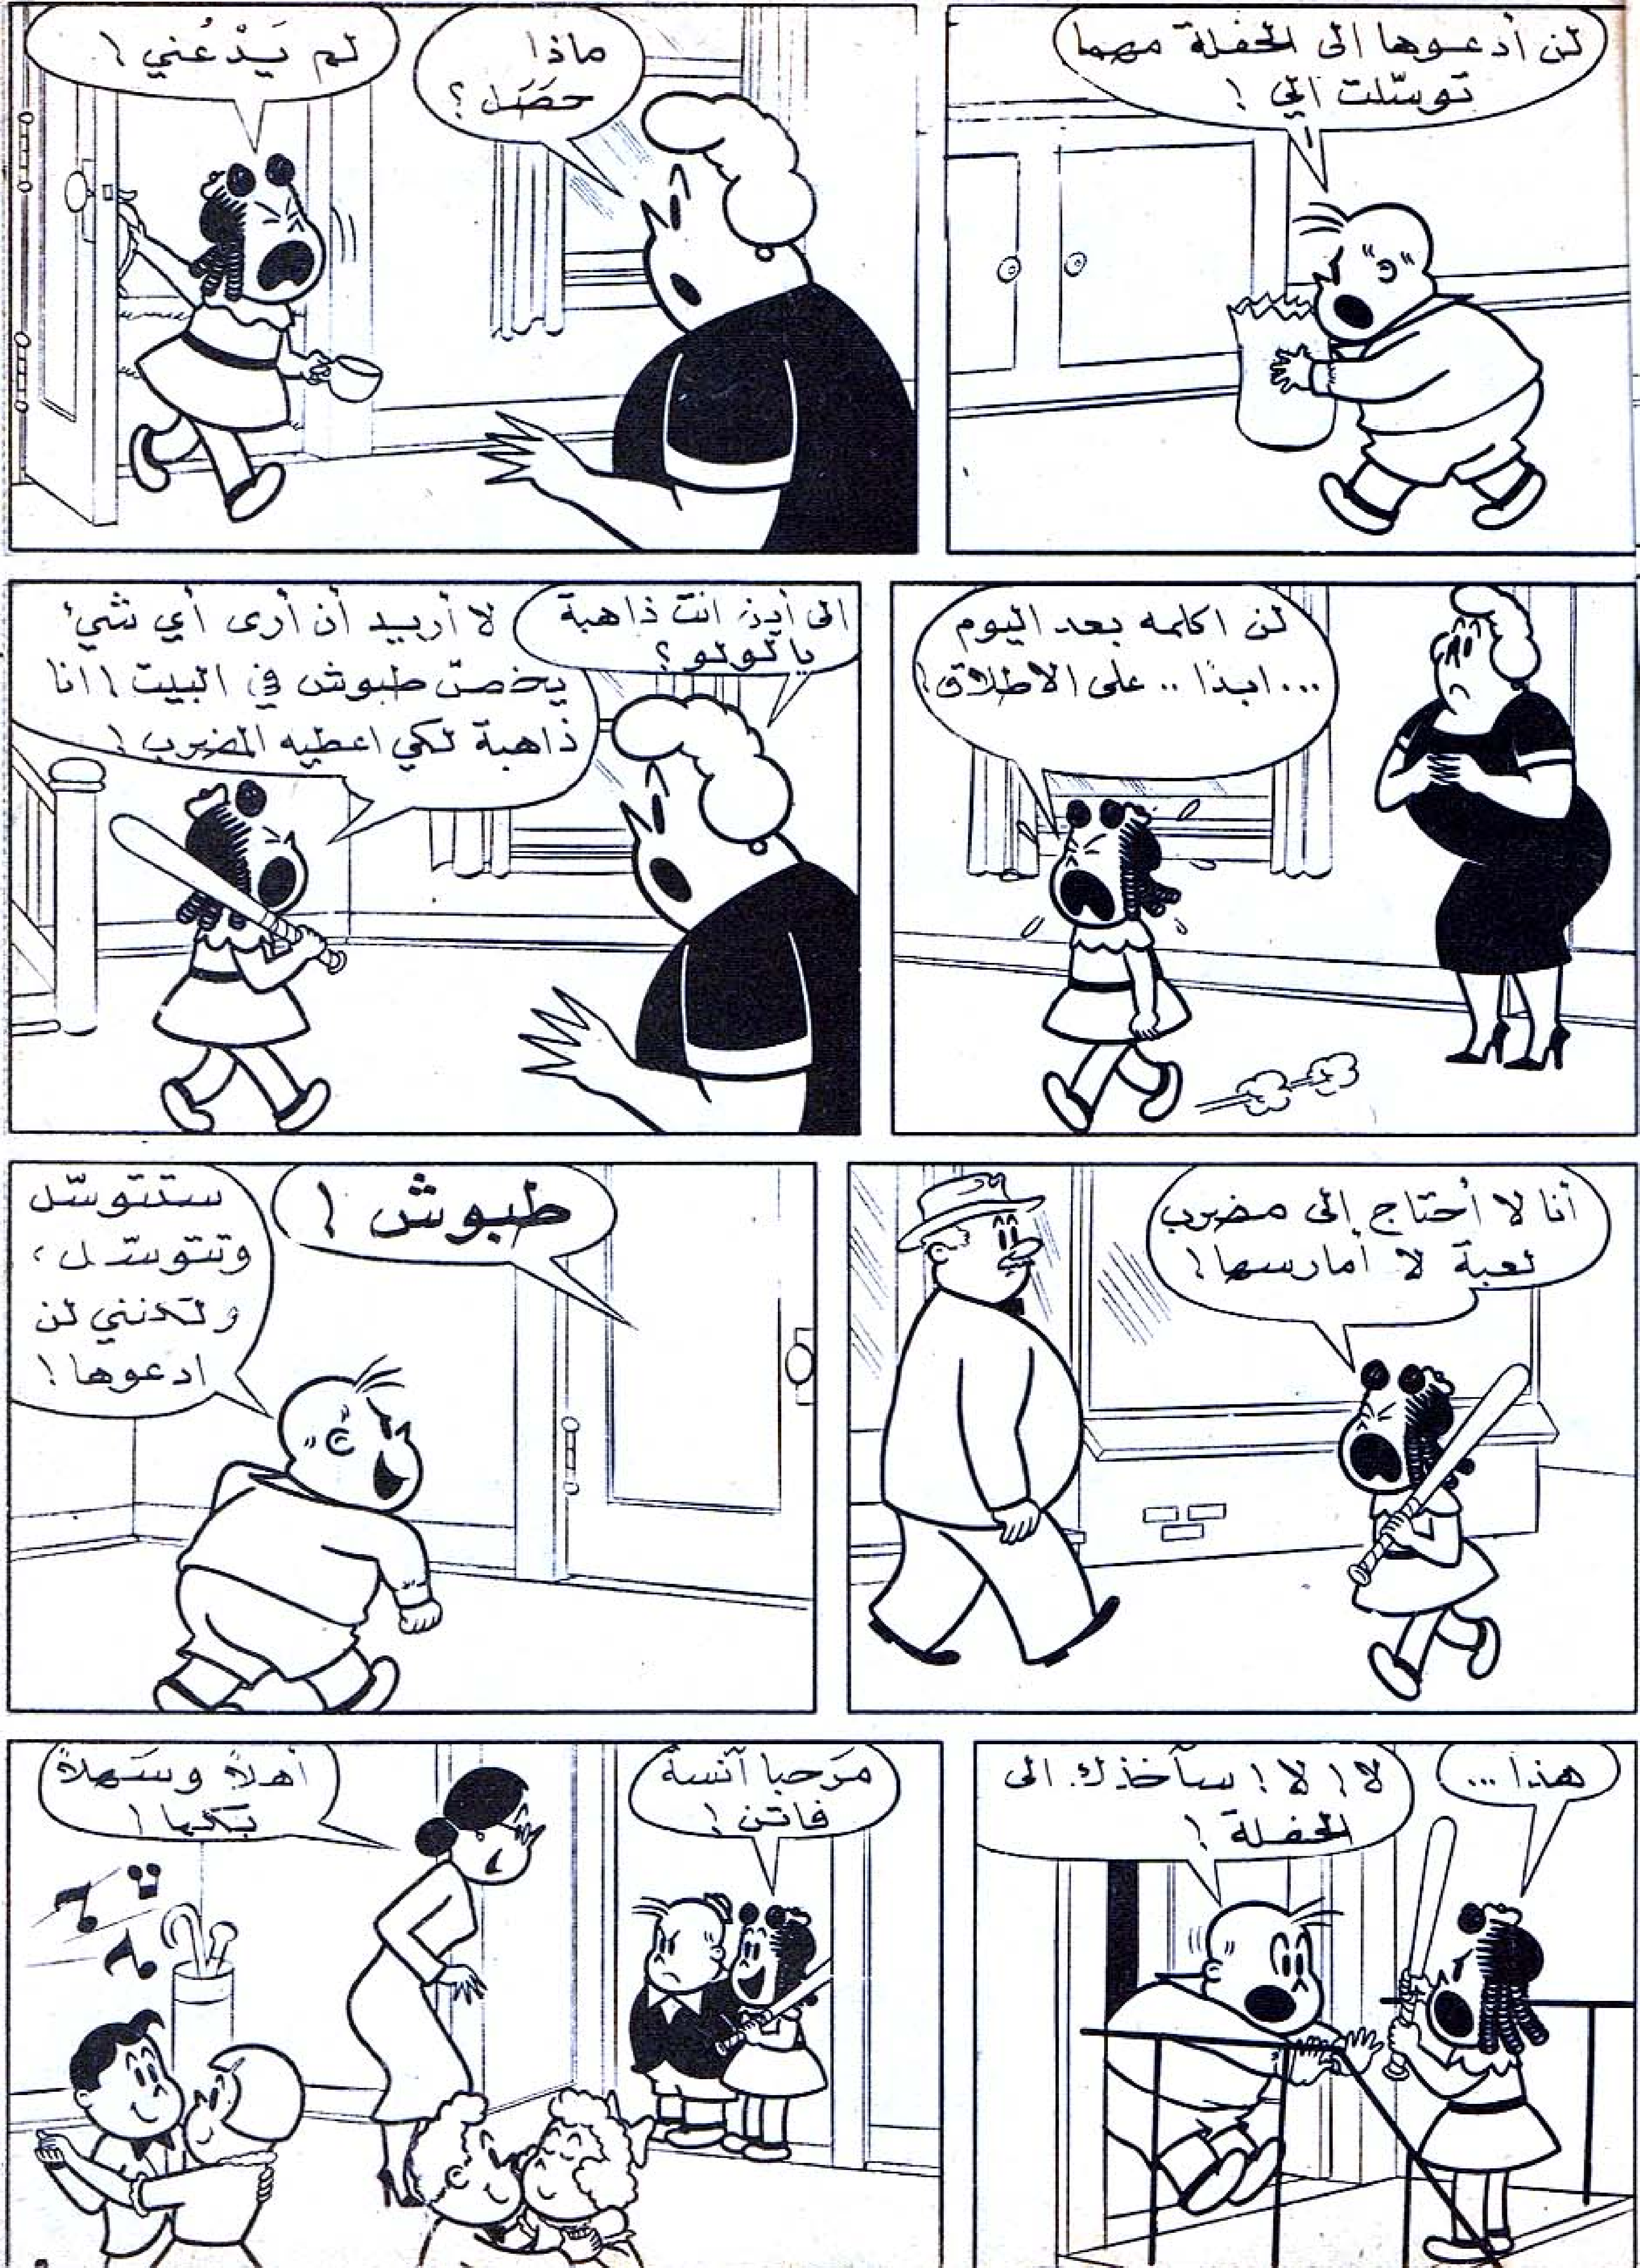 لن أدعوها الى الحفلة مهما
توسّلت اليّ !
ماذا
حصَل ؟
لم يَدْعُني !
لن اكلمه بعد اليوم
... ابدًا .. على الاطلاق !
الى أين انت ذاهبة
يا لولو ؟
لا أريد أن أرى أي شيئ
يخصّ طبوش في البيت ! انا
ذاهبة لكي اعطيه المضرب !
أنا لا أُحتاج إلى مضرب
لعبة لا أمارسها !
طبوش !
ستتوسّل
وتتوسّل ،
ولكنني لن
ادعوها !
هذا ...
لا ! لا ! سآخذك الى
الحفلة !
مَرحبا آنسة
فاتن !
أهلاً وسَهلاً
بكما !